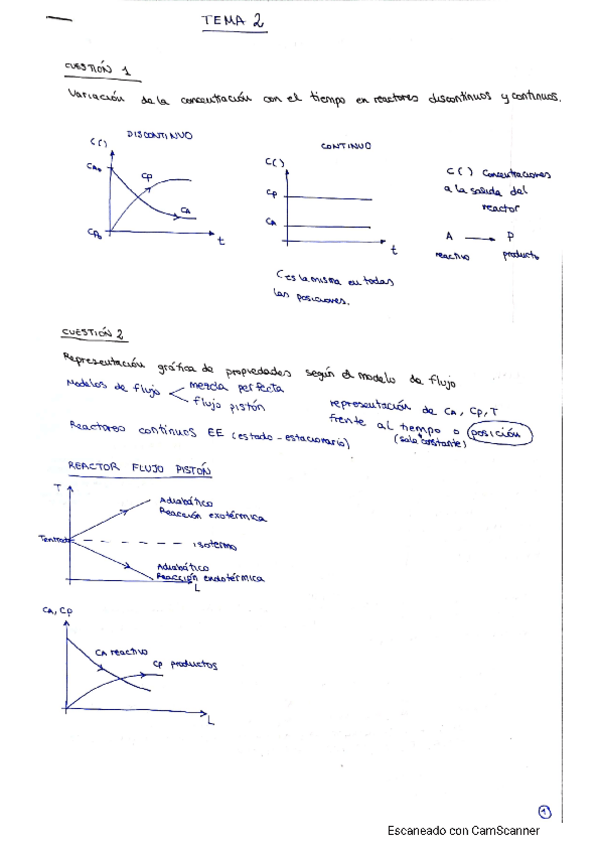 TEMA 2
CUESTIÓN 1
Variación de la concentración con el tiempo en reactores discontinuos y continuos.
DISCONTINUO
C()
CA₀
CP
CA
CP₀
t
CONTINUO
C()
CP
CA
t
C es la misma en todas
las posiciones.
C() Concentraciones
a la salida del
reactor
A → P
reactivo producto
CUESTIÓN 2
Representación gráfica de propiedades según el modelo de flujo
Modelos de flujo < mezcla perfecta
flujo pistón
representación de CA, CP, T
frente al tiempo o posición
(sale constante)
Reactores continuos EE (estado-estacionario)
REACTOR FLUJO PISTÓN
T
Adiabático
Reacción exotérmica
Tentrada
isotermo
Adiabático
Reacción endotérmica
L
CA, CP
CA reactivo
CP productos
L
1
Escaneado con CamScanner